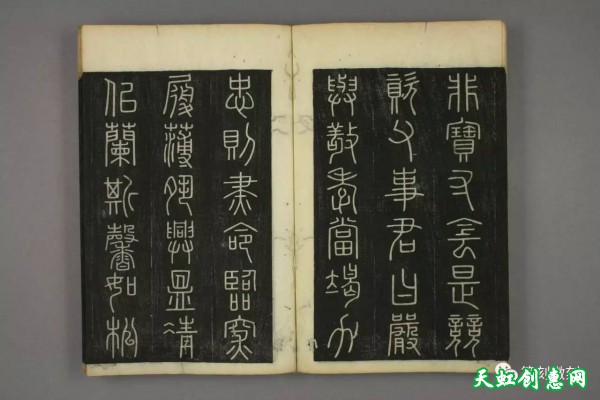 非寶寸陰是競
資父事君曰嚴
與敬孝當竭力
忠則盡命臨深
履薄夙興溫凊
似蘭斯馨如松
天虹创意网